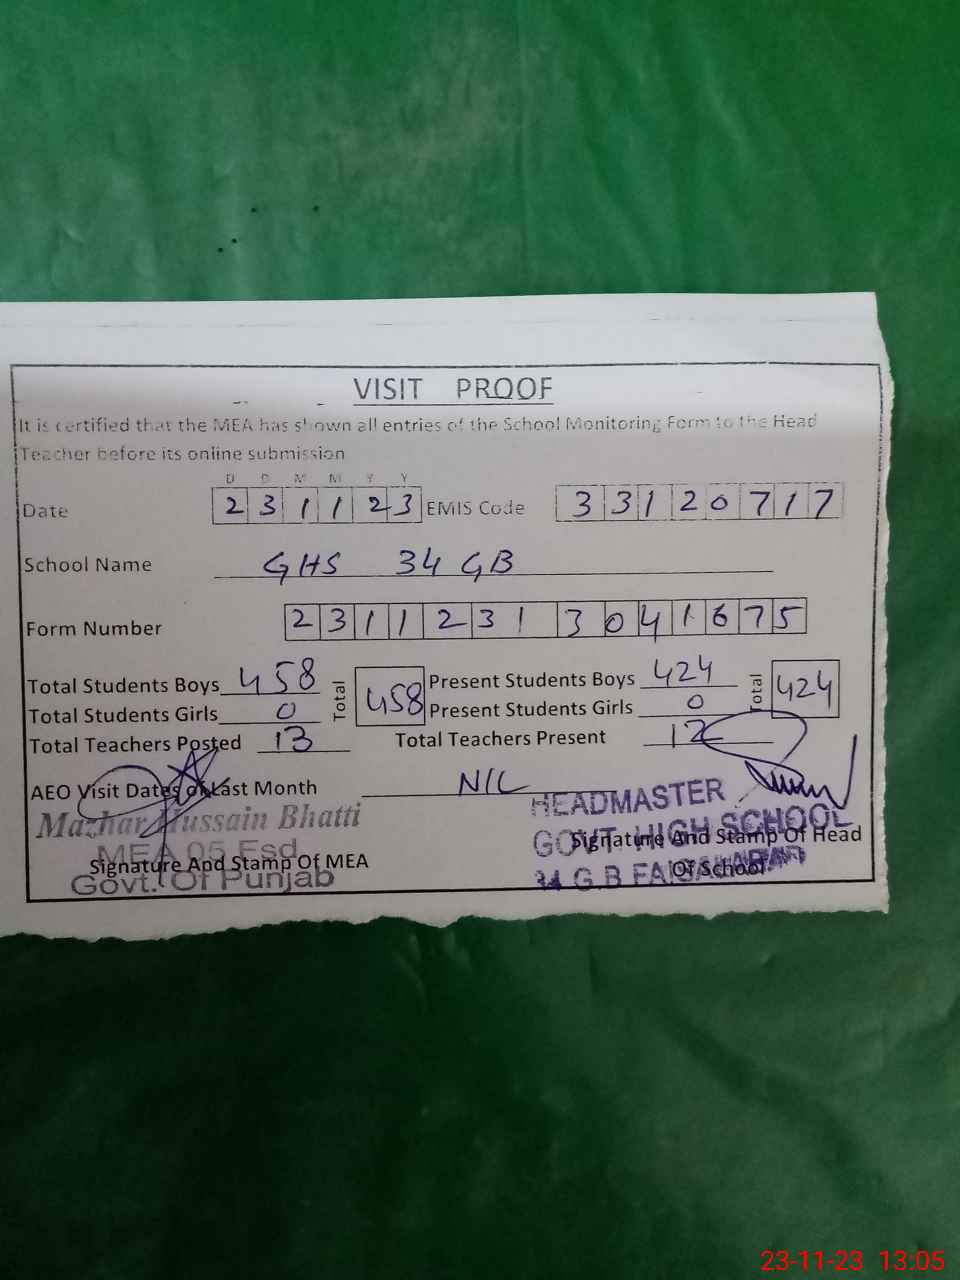 VISIT PROOF
It is certified that the MEA has shown all entries of the School Monitoring Form to the Head
Teacher before its online submission
D D M M Y Y
Date 2 3 1 1 2 3 EMIS Code 3 3 1 2 0 7 1 7
School Name GHS 34 GB
Form Number 2 3 1 1 2 3 1 3 0 4 1 6 7 5
Total Students Boys 458 Total 458 Present Students Boys 424 Total 424
Total Students Girls 0 Present Students Girls 0
Total Teachers Posted 13 Total Teachers Present 12
AEO Visit Dates of Last Month NIL
Mazhar Hussain Bhatti
MEA 05 Fsd
Signature And Stamp Of MEA
Govt. Of Punjab
HEADMASTER
GOVT. HIGH SCHOOL
Signature And Stamp Of Head
Of School
34 G.B FAISALABAD
23-11-23 13:05